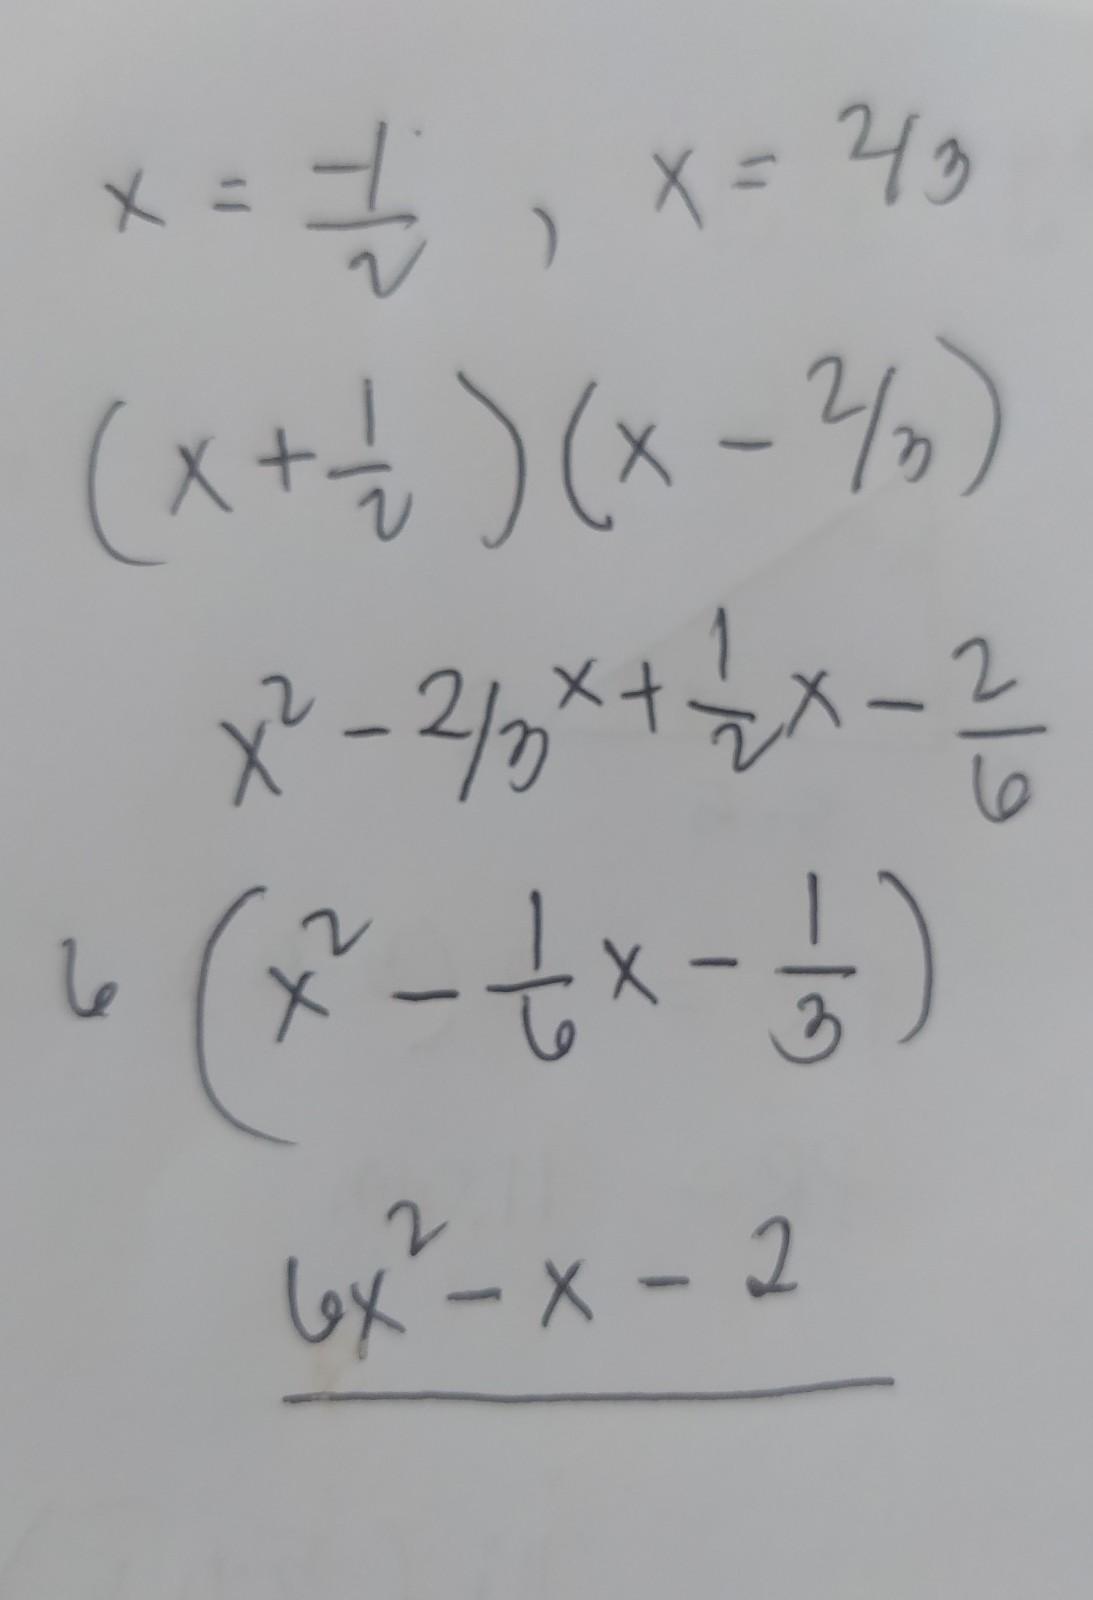 x = -1/2 , x = 2/3
(x + 1/2)(x - 2/3)
x² - 2/3 x + 1/2 x - 2/6
6 (x² - 1/6 x - 1/3)
6x² - x - 2